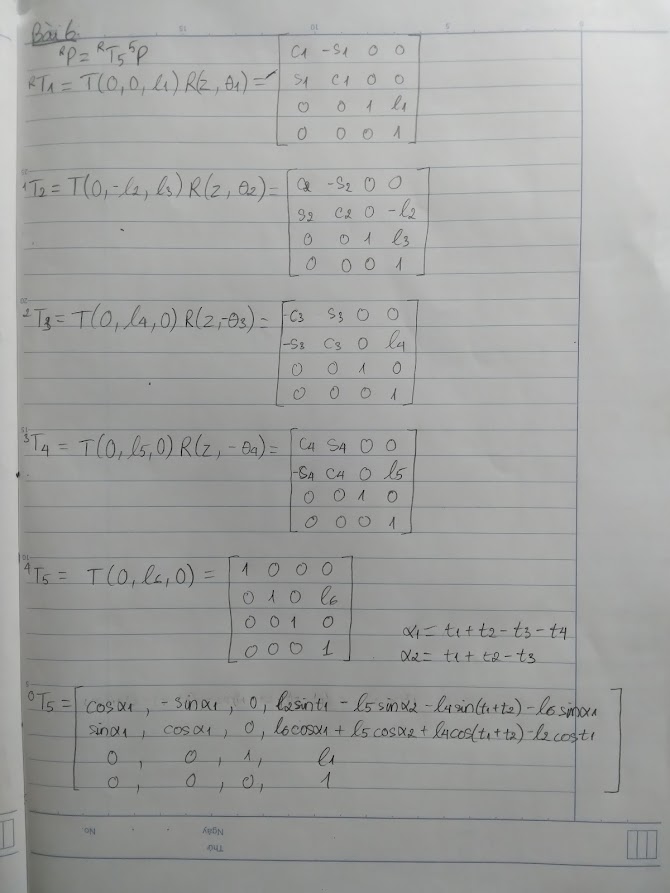 Bài 6:
ᴿP = ᴿT₅ ⁵P
ᴿT₁ = T(0, 0, l₁) R(z, θ₁) =
C₁ -S₁ 0 0
S₁ C₁ 0 0
0 0 1 l₁
0 0 0 1
¹T₂ = T(0, -l₂, l₃) R(z, θ₂) =
C₂ -S₂ 0 0
S₂ C₂ 0 -l₂
0 0 1 l₃
0 0 0 1
²T₃ = T(0, l₄, 0) R(z, -θ₃) =
C₃ S₃ 0 0
-S₃ C₃ 0 l₄
0 0 1 0
0 0 0 1
³T₄ = T(0, l₅, 0) R(z, -θ₄) =
C₄ S₄ 0 0
-S₄ C₄ 0 l₅
0 0 1 0
0 0 0 1
⁴T₅ = T(0, l₆, 0) =
1 0 0 0
0 1 0 l₆
0 0 1 0
0 0 0 1
α₁ = t₁ + t₂ - t₃ - t₄
α₂ = t₁ + t₂ - t₃
⁰T₅ =
cosα₁, -sinα₁, 0, l₂sint₁ - l₅sinα₂ - l₄sin(t₁+t₂) - l₆sinα₁
sinα₁, cosα₁, 0, l₆cosα₁ + l₅cosα₂ + l₄cos(t₁+t₂) - l₂cost₁
0, 0, 1, l₁
0, 0, 0, 1
No.
Ngày
Thứ